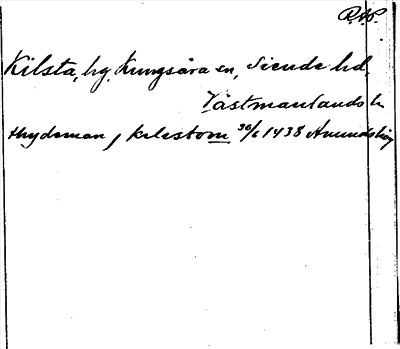 R.A.P.
Kilsta, hg. Kungsåra sn, Siende hd.
Västmanlands l.
thydeman j kelestom 30/6 1438 Amundshög